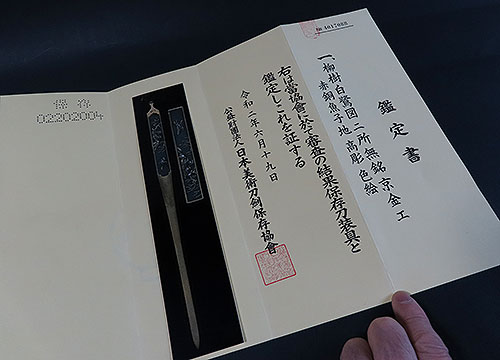 No 4017088
鑑定書
一、柳樹白鷺図二所 無銘 京金工
赤銅魚子地 高彫 色絵
右は當協會に於て審査の結果保存刀装具と
鑑定しこれを証する
令和二年六月十九日
公益財団法人日本美術刀剣保存協會
保存
02202004